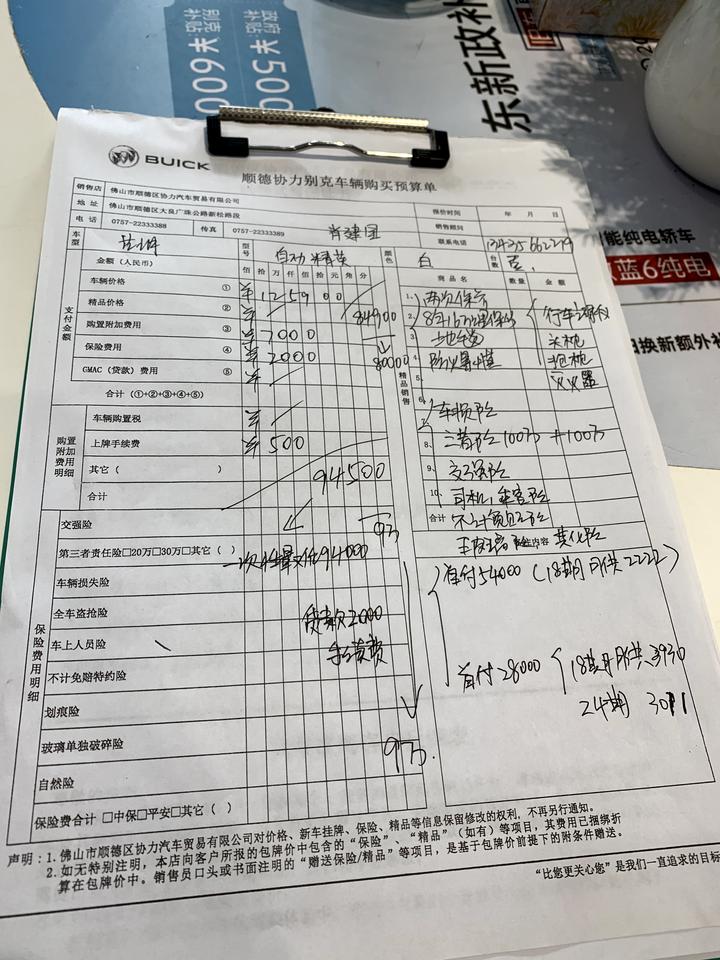 政府补贴:
¥500
别克补贴:
¥600
东新政补
能纯电轿车
蓝6纯电
旧换新额外补
BUICK
顺德协力别克车辆购买预算单
销售店 佛山市顺德区协力汽车贸易有限公司 报价时间 年 月 日
地址 佛山市顺德区大良广珠公路新松路段 销售顾问
电话 0757-22333388 传真 0757-22333389 肖建国 联系电话
车型 型号 自动 精英 颜色 白 台数 壹
金额(人民币) 佰 拾 万 仟 佰 拾 元 角 分 商品名 数量 金额
支付金额
车辆价格 ① ¥125900
精品价格 ② 84900
购置附加费用 ③ 7000
保险费用 ④ ¥2000 80000
GMAC(贷款)费用 ⑤ ¥
合计(①+②+③+④+⑤)
精品销售
1、两次保养
2、行车记录仪
3、
4、防火
5、灭火器
6、
7、车损险
8、三者险100万 +100万
9、交强险
10、司机,乘客险
合计 不计免赔险
购置附加费用明细
车辆购置税 ¥
上牌手续费 ¥500
其它( ) 94500
合计
保险费用明细
交强险 9万
第三者责任险□20万□30万□其它( ) 一次性 94000
车辆损失险
全车盗抢险 贷款2000
车上人员险 手续费
不计免赔特约险
划痕险
玻璃单独破碎险 9万.
自然险
保险费合计 □中保□平安□其它( )
首付54000(18期月供2222)
首付28000 18期月供3930
24期 3011
声明:1.佛山市顺德区协力汽车贸易有限公司对价格、新车挂牌、保险、精品等信息保留修改的权利,不再另行通知。
2.如无特别注明,本店向客户所报的包牌价中包含的“保险”、“精品”(如有)等项目,其费用已捆绑折
算在包牌价中。销售员口头或书面注明的“赠送保险/精品”等项目,是基于包牌价前提下的附条件赠送。
“比您更关心您”是我们一直追求的目标